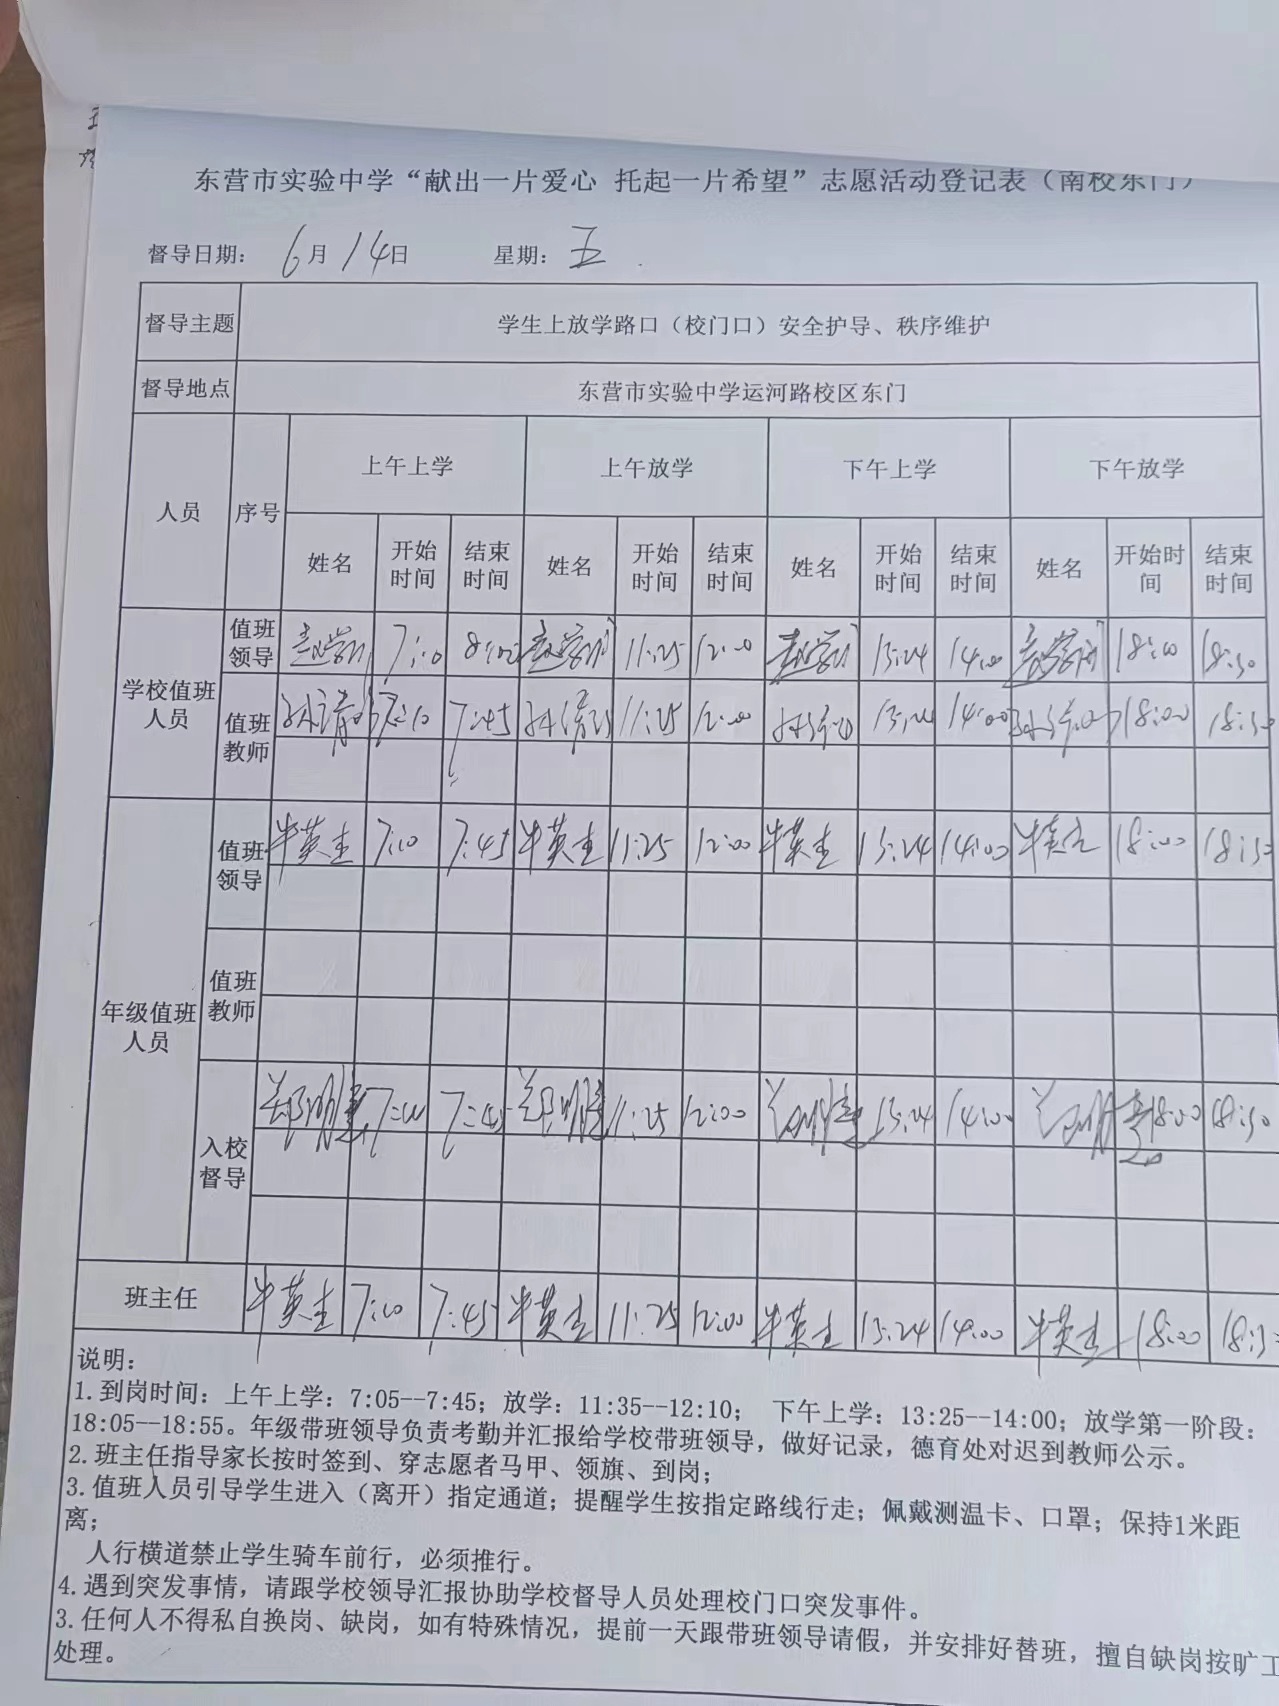 东营市实验中学“献出一片爱心 托起一片希望”志愿活动登记表（南校东门）
督导日期： 6月14日 星期：五
督导主题 学生上放学路口（校门口）安全护导、秩序维护
督导地点 东营市实验中学运河路校区东门
人员 序号 上午上学 上午放学 下午上学 下午放学
姓名 开始时间 结束时间 姓名 开始时间 结束时间 姓名 开始时间 结束时间 姓名 开始时间 结束时间
学校值班人员 值班领导 11:25 12:00 13:24 14:00 18:00 18:30
值班教师 7:45 11:25 12:00 13:24 14:00 18:00 18:30
年级值班人员 值班领导 牛英杰 7:10 7:45 牛英杰 11:25 12:00 牛英杰 13:24 14:00 牛英杰 18:00 18:30
值班教师
入校督导 7:45 11:25 12:00 13:24 14:00 18:00 18:30
班主任 牛英杰 7:10 7:45 牛英杰 11:25 12:00 牛英杰 13:24 14:00 牛英杰 18:00 18:30
说明：
1.到岗时间：上午上学：7:05--7:45；放学：11:35--12:10； 下午上学：13:25--14:00；放学第一阶段：
18:05--18:55。年级带班领导负责考勤并汇报给学校带班领导，做好记录，德育处对迟到教师公示。
2.班主任指导家长按时签到、穿志愿者马甲、领旗、到岗；
3.值班人员引导学生进入（离开）指定通道；提醒学生按指定路线行走；佩戴测温卡、口罩；保持1米距
离；
人行横道禁止学生骑车前行，必须推行。
4.遇到突发事情，请跟学校领导汇报协助学校督导人员处理校门口突发事件。
3.任何人不得私自换岗、缺岗，如有特殊情况，提前一天跟带班领导请假，并安排好替班，擅自缺岗按旷工
处理。